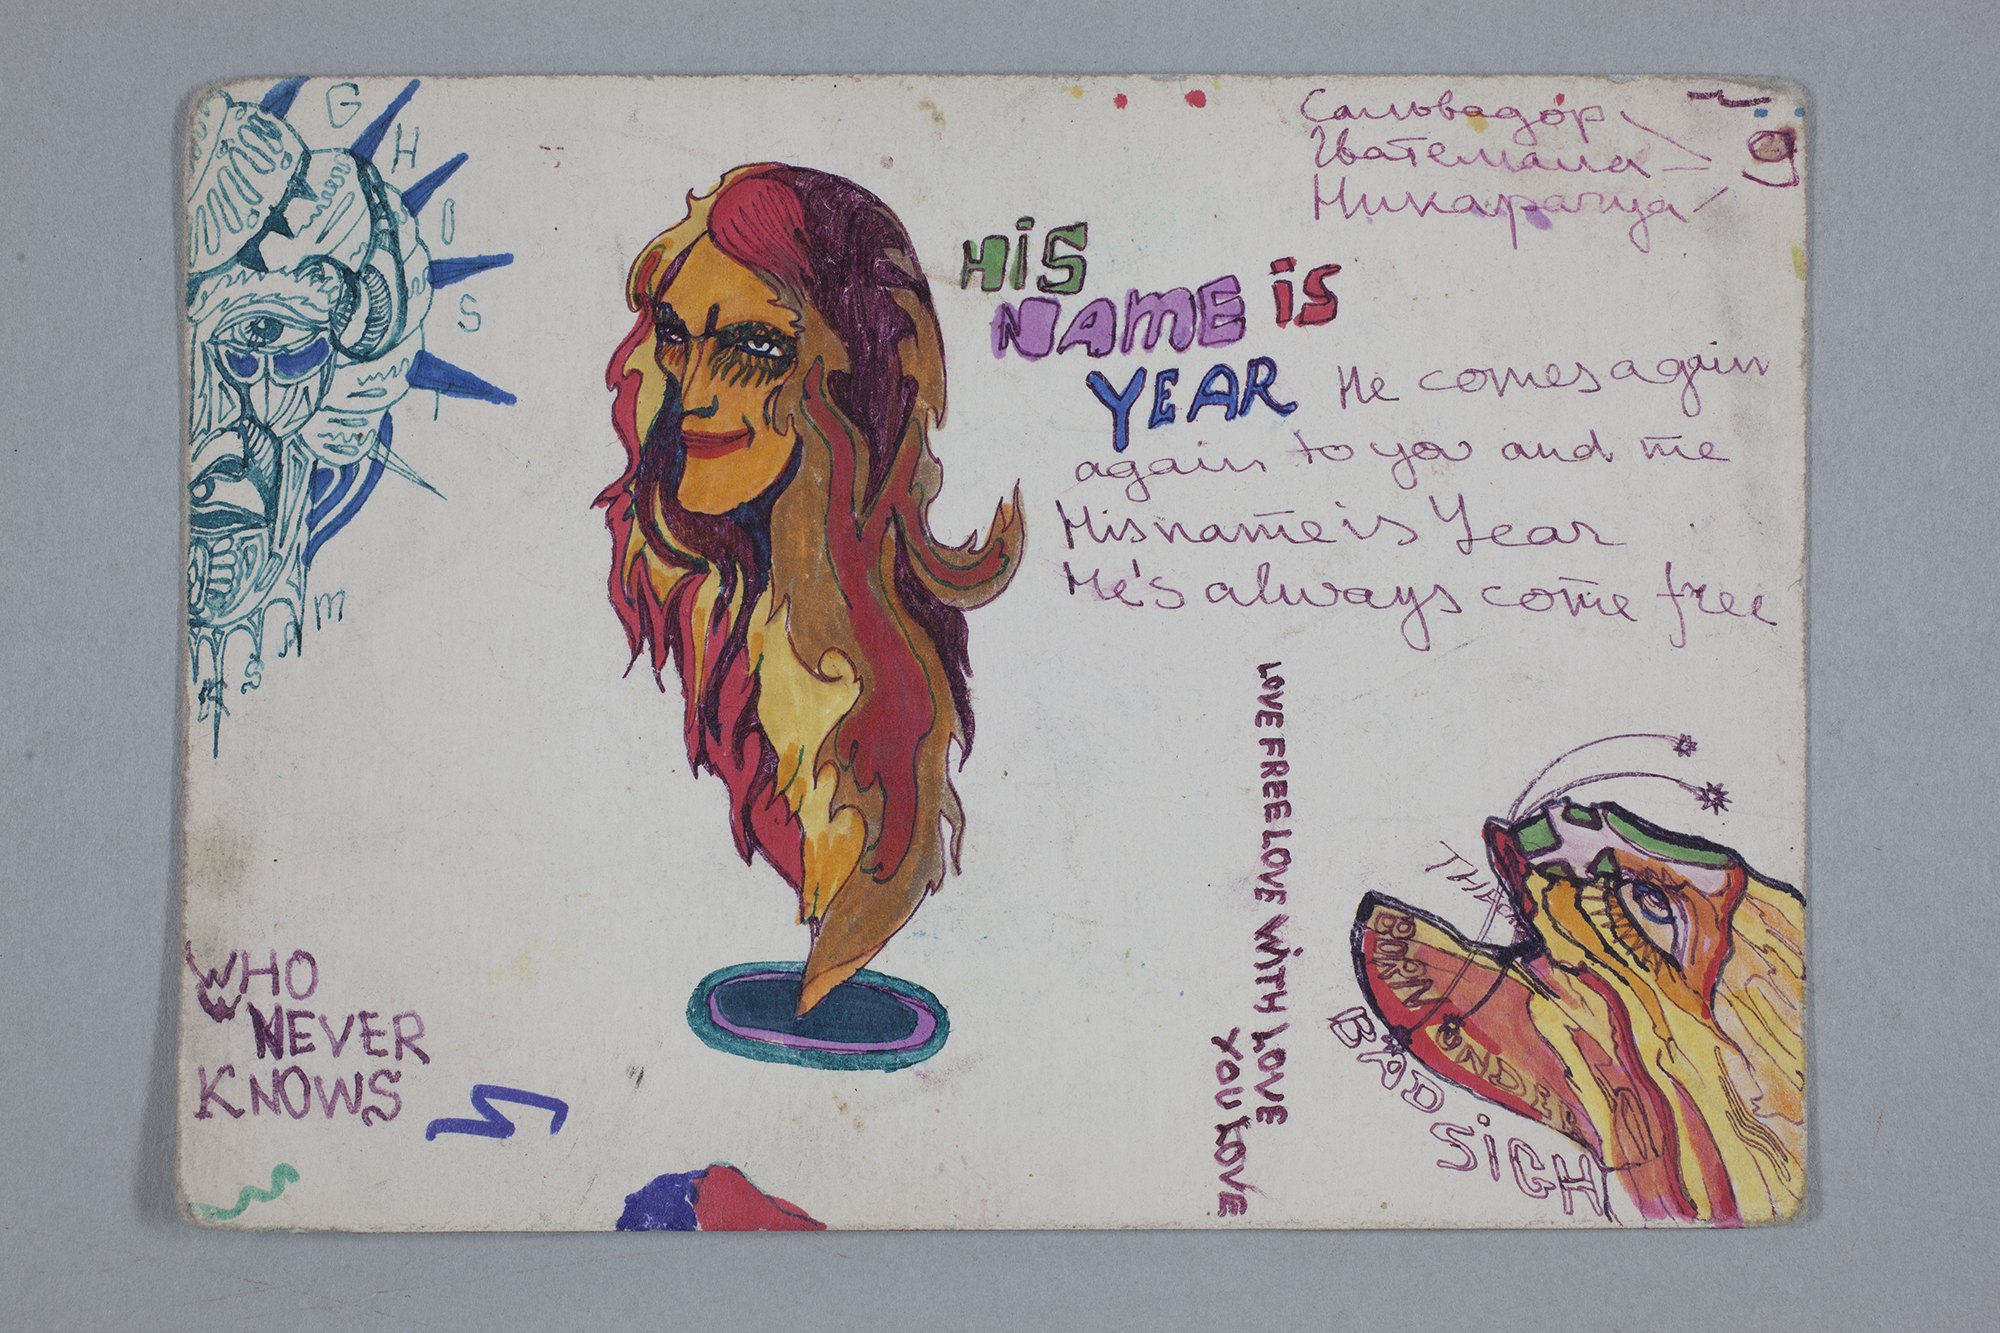 Сальвадор
Гватемала
Никарагуа
9
G
H
I
S
I
m
S
HiS
NAME iS
YEAR He comes again
again to you and me
His name is Year
He's always come free
LOVE FREE LOVE WITH LOVE
YOU LOVE
WHO
NEVER
KNOWS
BORN UNDER
BAD SiGH